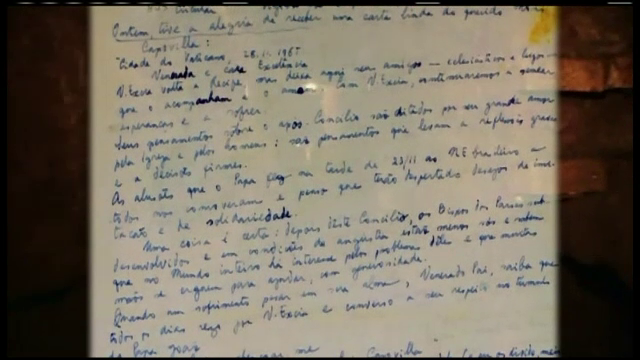 Circular
Ontem, tive a alegria de receber uma carta linda do querido
Capovilla:
"Cidade do Vaticano, 28.11.1965
Venerada e cara Excelência
V. Excia volta a Recife, mas deixa aqui seus amigos — eclesiásticos e leigos —
que o acompanham e o amam. Com V. Excia, continuaremos a semear
esperanças e a sofrer.
Seus pensamentos sobre o após-Concílio são ditados por seu grande amor
pela Igreja e pelos homens: são pensamentos que levam a reflexões graves
e a decisões firmes.
As alusões que o Papa fez na tarde de 23/11 ao NE brasileiro a
todos nos comoveram e penso que terão despertado desejos de
contacto e de solidariedade.
Uma coisa é certa: depois deste Concílio, os Bispos dos Países sub-
desenvolvidos e em condições de angústia estão menos sós e sabem
que no Mundo inteiro há interesse pelos problemas deles e que muitas
mãos se erguem para ajudar, com generosidade.
Quando um sofrimento pesar em sua alma, Venerado Pai, saiba que
todos os dias rezo por V. Excia e converso a seu respeito no
do Papa
me Capovilla"